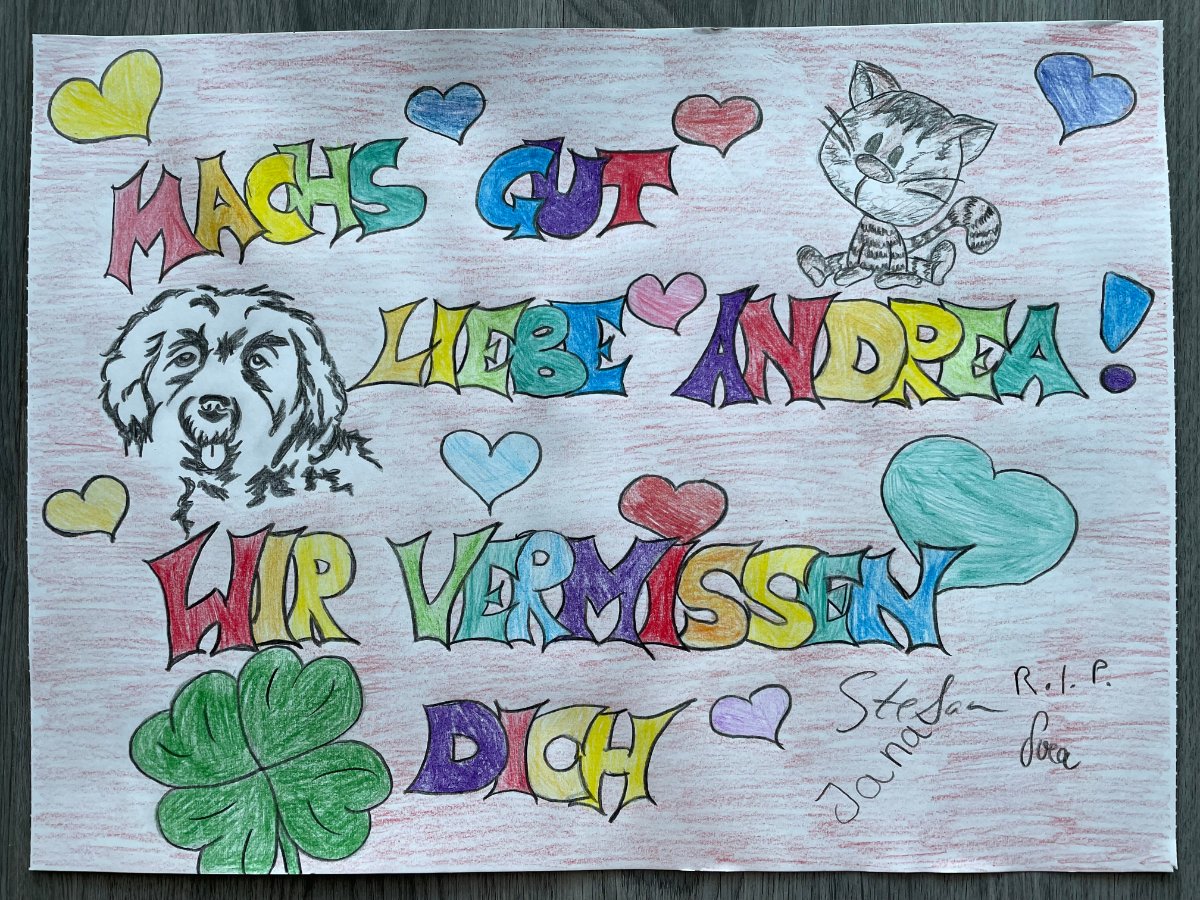 MACHS GUT
LIEBE ANDREA!
WIR VERMISSEN
DICH
Stefan
R.I.P.
Jana